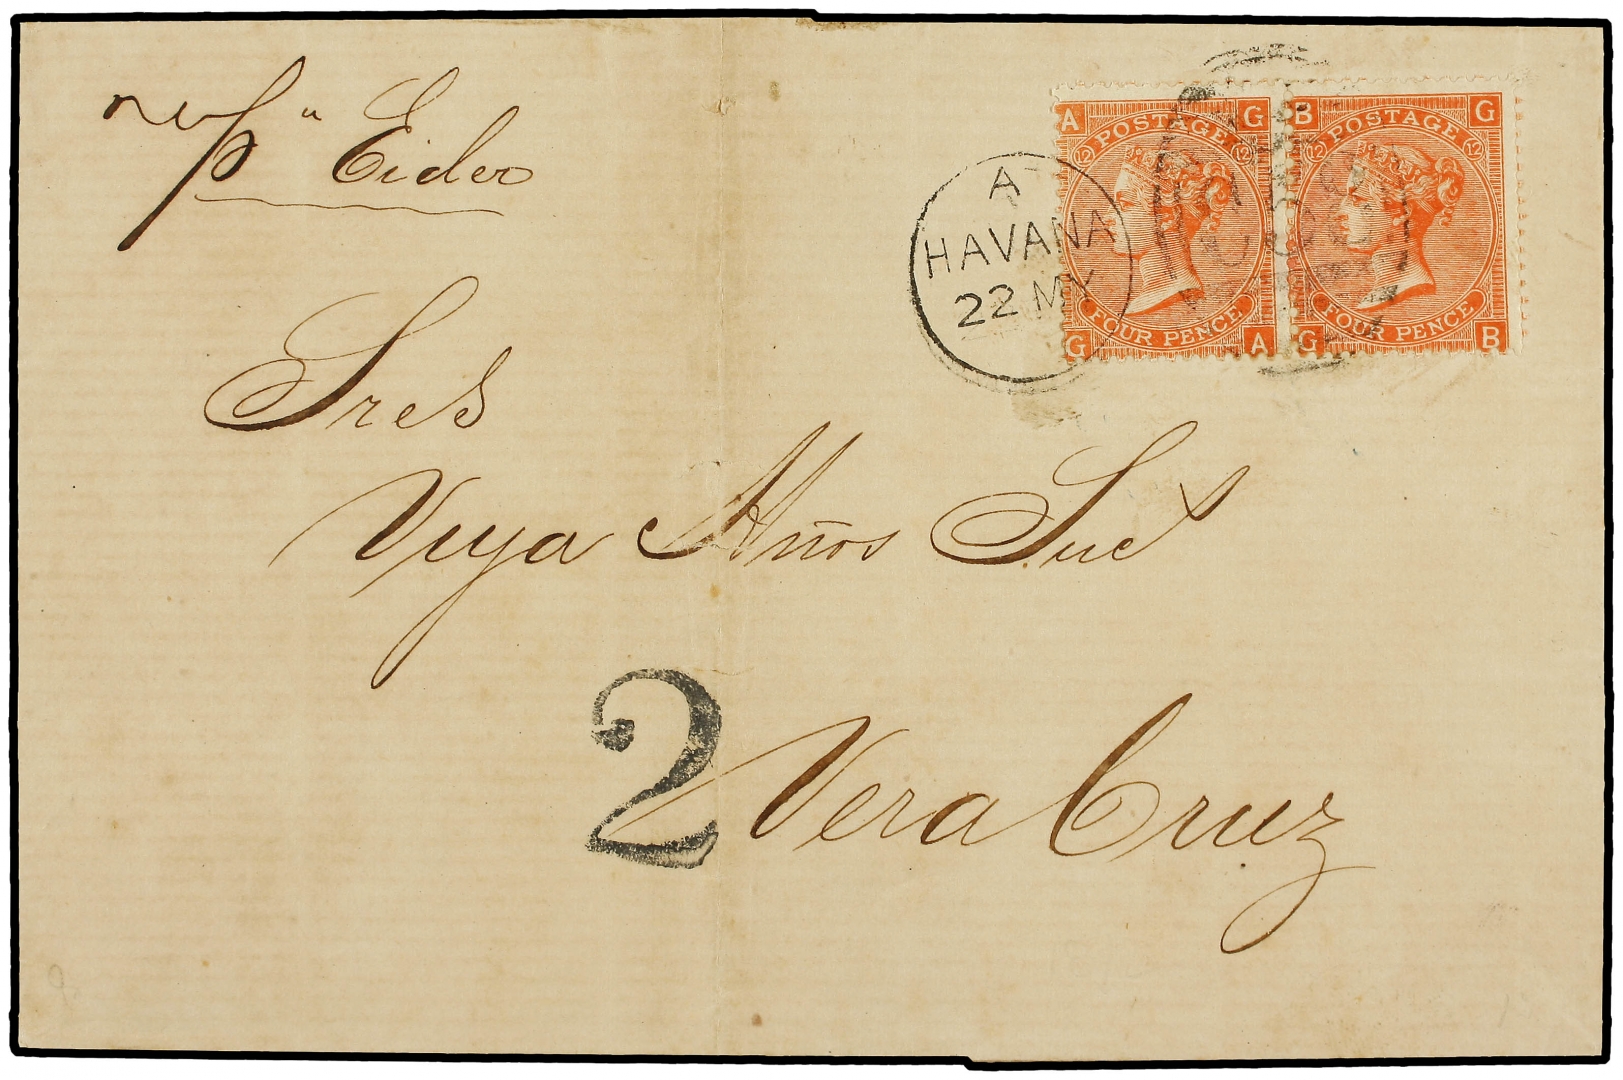 p" Eider
A G
POSTAGE
12 12
FOUR PENCE
G A
B G
POSTAGE
12 12
FOUR PENCE
G B
A
HAVANA
22 MY
Sres
Veya Hños Suc
2
Vera Cruz